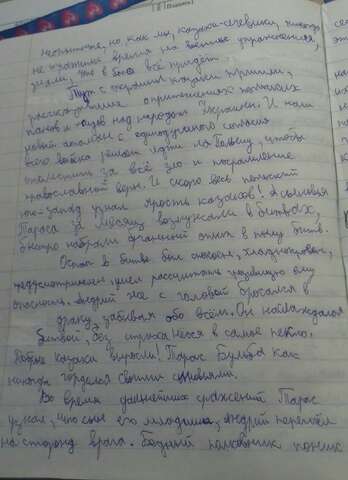 но, как мы, казаки-сечевики, никогда
не тратили время на военные упражнения,
знали, что в бою всё придёт.
Тут с
рассказами о притеснениях польских
панов над народом Украины. И наш
новый атаман с единодушного согласия
всего войска решил идти на Польшу, чтобы
отомстить за всё зло и посрамление
православной веры. И скоро весь польский
юго-запад узнал ярость казаков! А сыновья
Тараса за месяц возмужали в битвах,
быстро набрали опыт в битв.
Остап в битве был спокоен, хладнокровен,
предусмотрителен, умел рассчитать грозившую ему
опасность. Андрей же с головой бросался в
драку, забывая обо всём. Он наслаждался
битвой, без страха нёсся в самое пекло.
Добрые казаки выросли! Тарас Бульба как
никогда гордился своими сыновьями.
Во время дальнейших сражений Тарас
узнал, что сын его младший, Андрей перешёл
на сторону врага. Бедный полковник поник